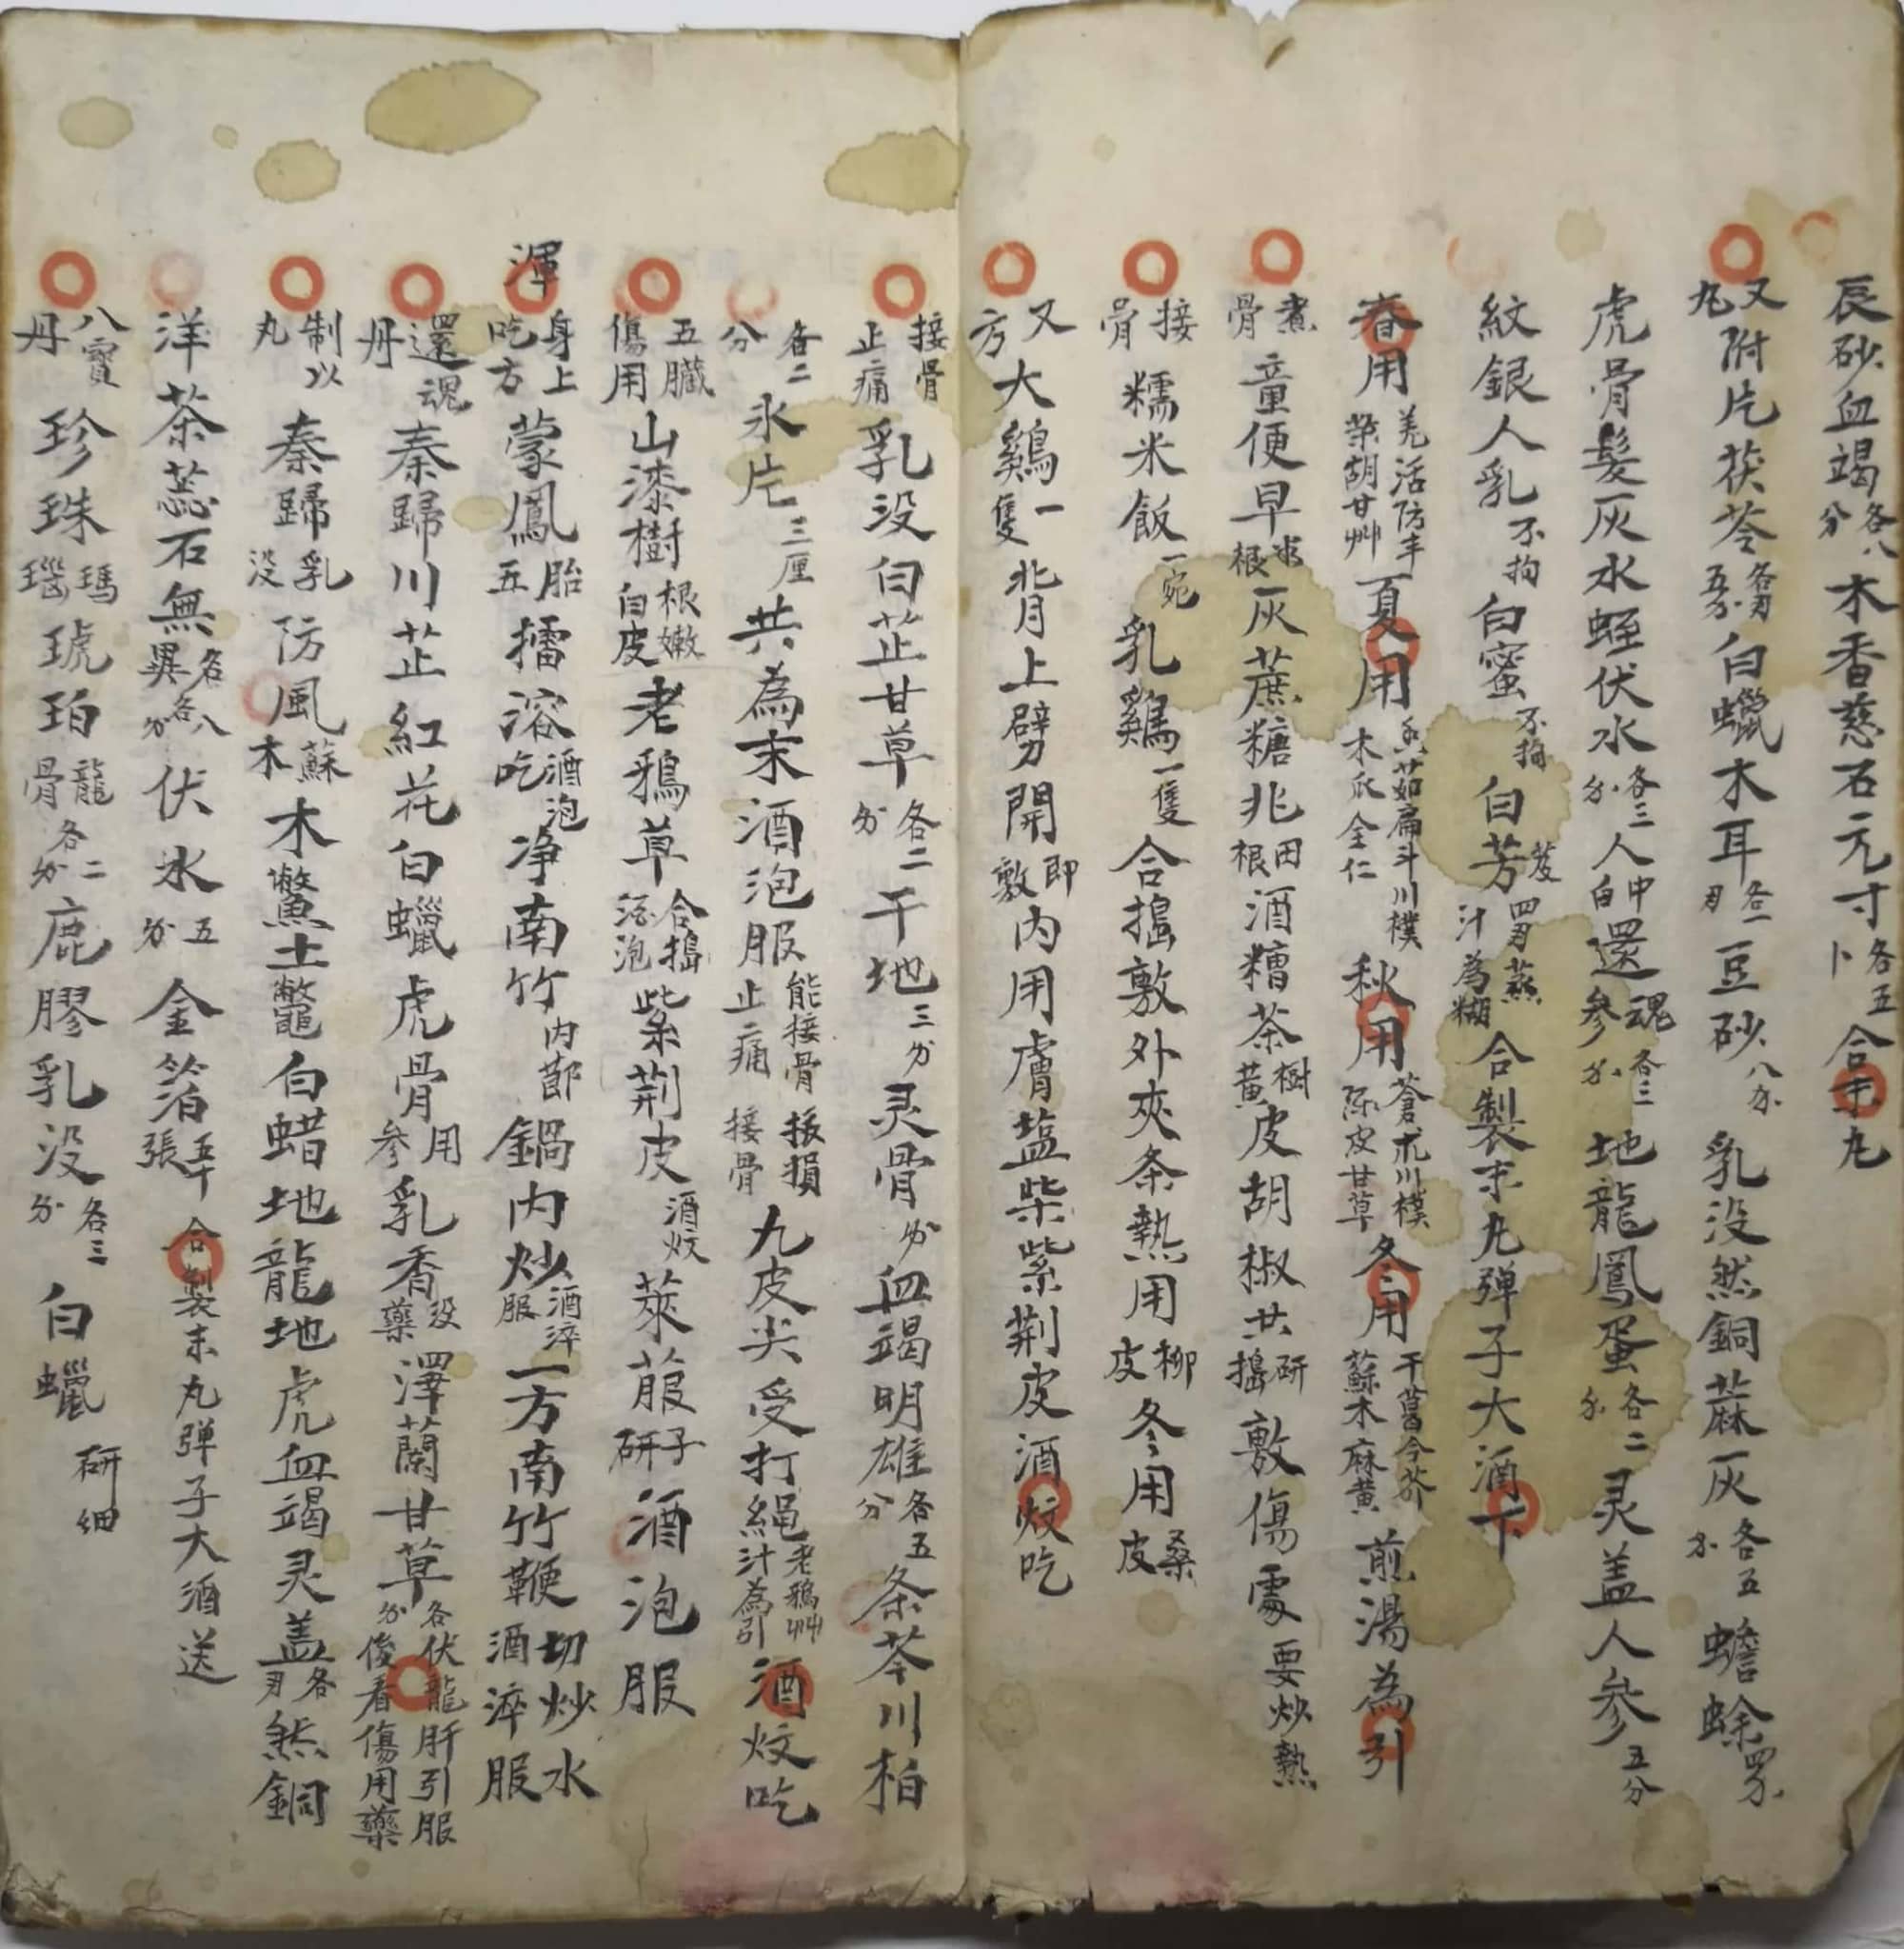 辰砂血竭各八分木香慈石元寸各五卜合末丸
又丸附片茯苓各刃五分白蠟木耳各一刃豆砂八分乳没然銅蔴灰各五分蟾蜍四分
虎骨髮灰水蛭伏水各三分人中白還魂参各三分地龍鳳蛋各二分灵盖人参五分
紋銀人乳不拘白蜜不拘白芳芨四刃蒸汁為糊合製末丸弹子大酒下
春用羌活防丰柴胡甘艸夏用香茹扁斗川樸木瓜全仁秋用蒼朮川樸陈皮甘草冬用干葛今芥蘇木麻黄煎湯為引
煮骨童便早根灰蔗糖兆田根酒糟茶樹黄皮胡椒共研搗敷傷處要炒熱
接骨糯米飯一宛乳鷄一隻合搗敷外夾条熱用柳皮冬用桑皮
又方大鷄一隻背上劈開即敷内用膚塩柴紫荆皮酒炆吃
接骨止痛乳没白芷甘草各二分干地三分灵骨分血竭明雄各五分条芩川柏
各二分氷片三厘共為末酒泡服能接骨止痛扳損接骨九皮尖受打繩老鴉艸汁為引酒炆吃
五臟傷用山漆樹根嫩白皮老鴉草合搗酒泡紫荆皮酒炆萊菔子研酒泡服
渾身上吃方蒙鳳胎五擂溶酒泡吃净南竹内節鍋内炒酒淬服一方南竹鞭切炒水酒淬服
還魂丹秦歸川芷紅花白蠟虎骨用参乳香没藥澤蘭甘草各分伏龍肝引服後看傷用藥
制以丸秦歸乳没防風蘇木木鱉土鱉白蜡地龍地虎血竭灵盖各刃然銅
洋茶蕊石無異名各八分伏水五分金箔五十張合製末丸弹子大酒送
八寳丹珍珠瑪瑙琥珀龍骨各二分鹿膠乳没各三分白蠟研細